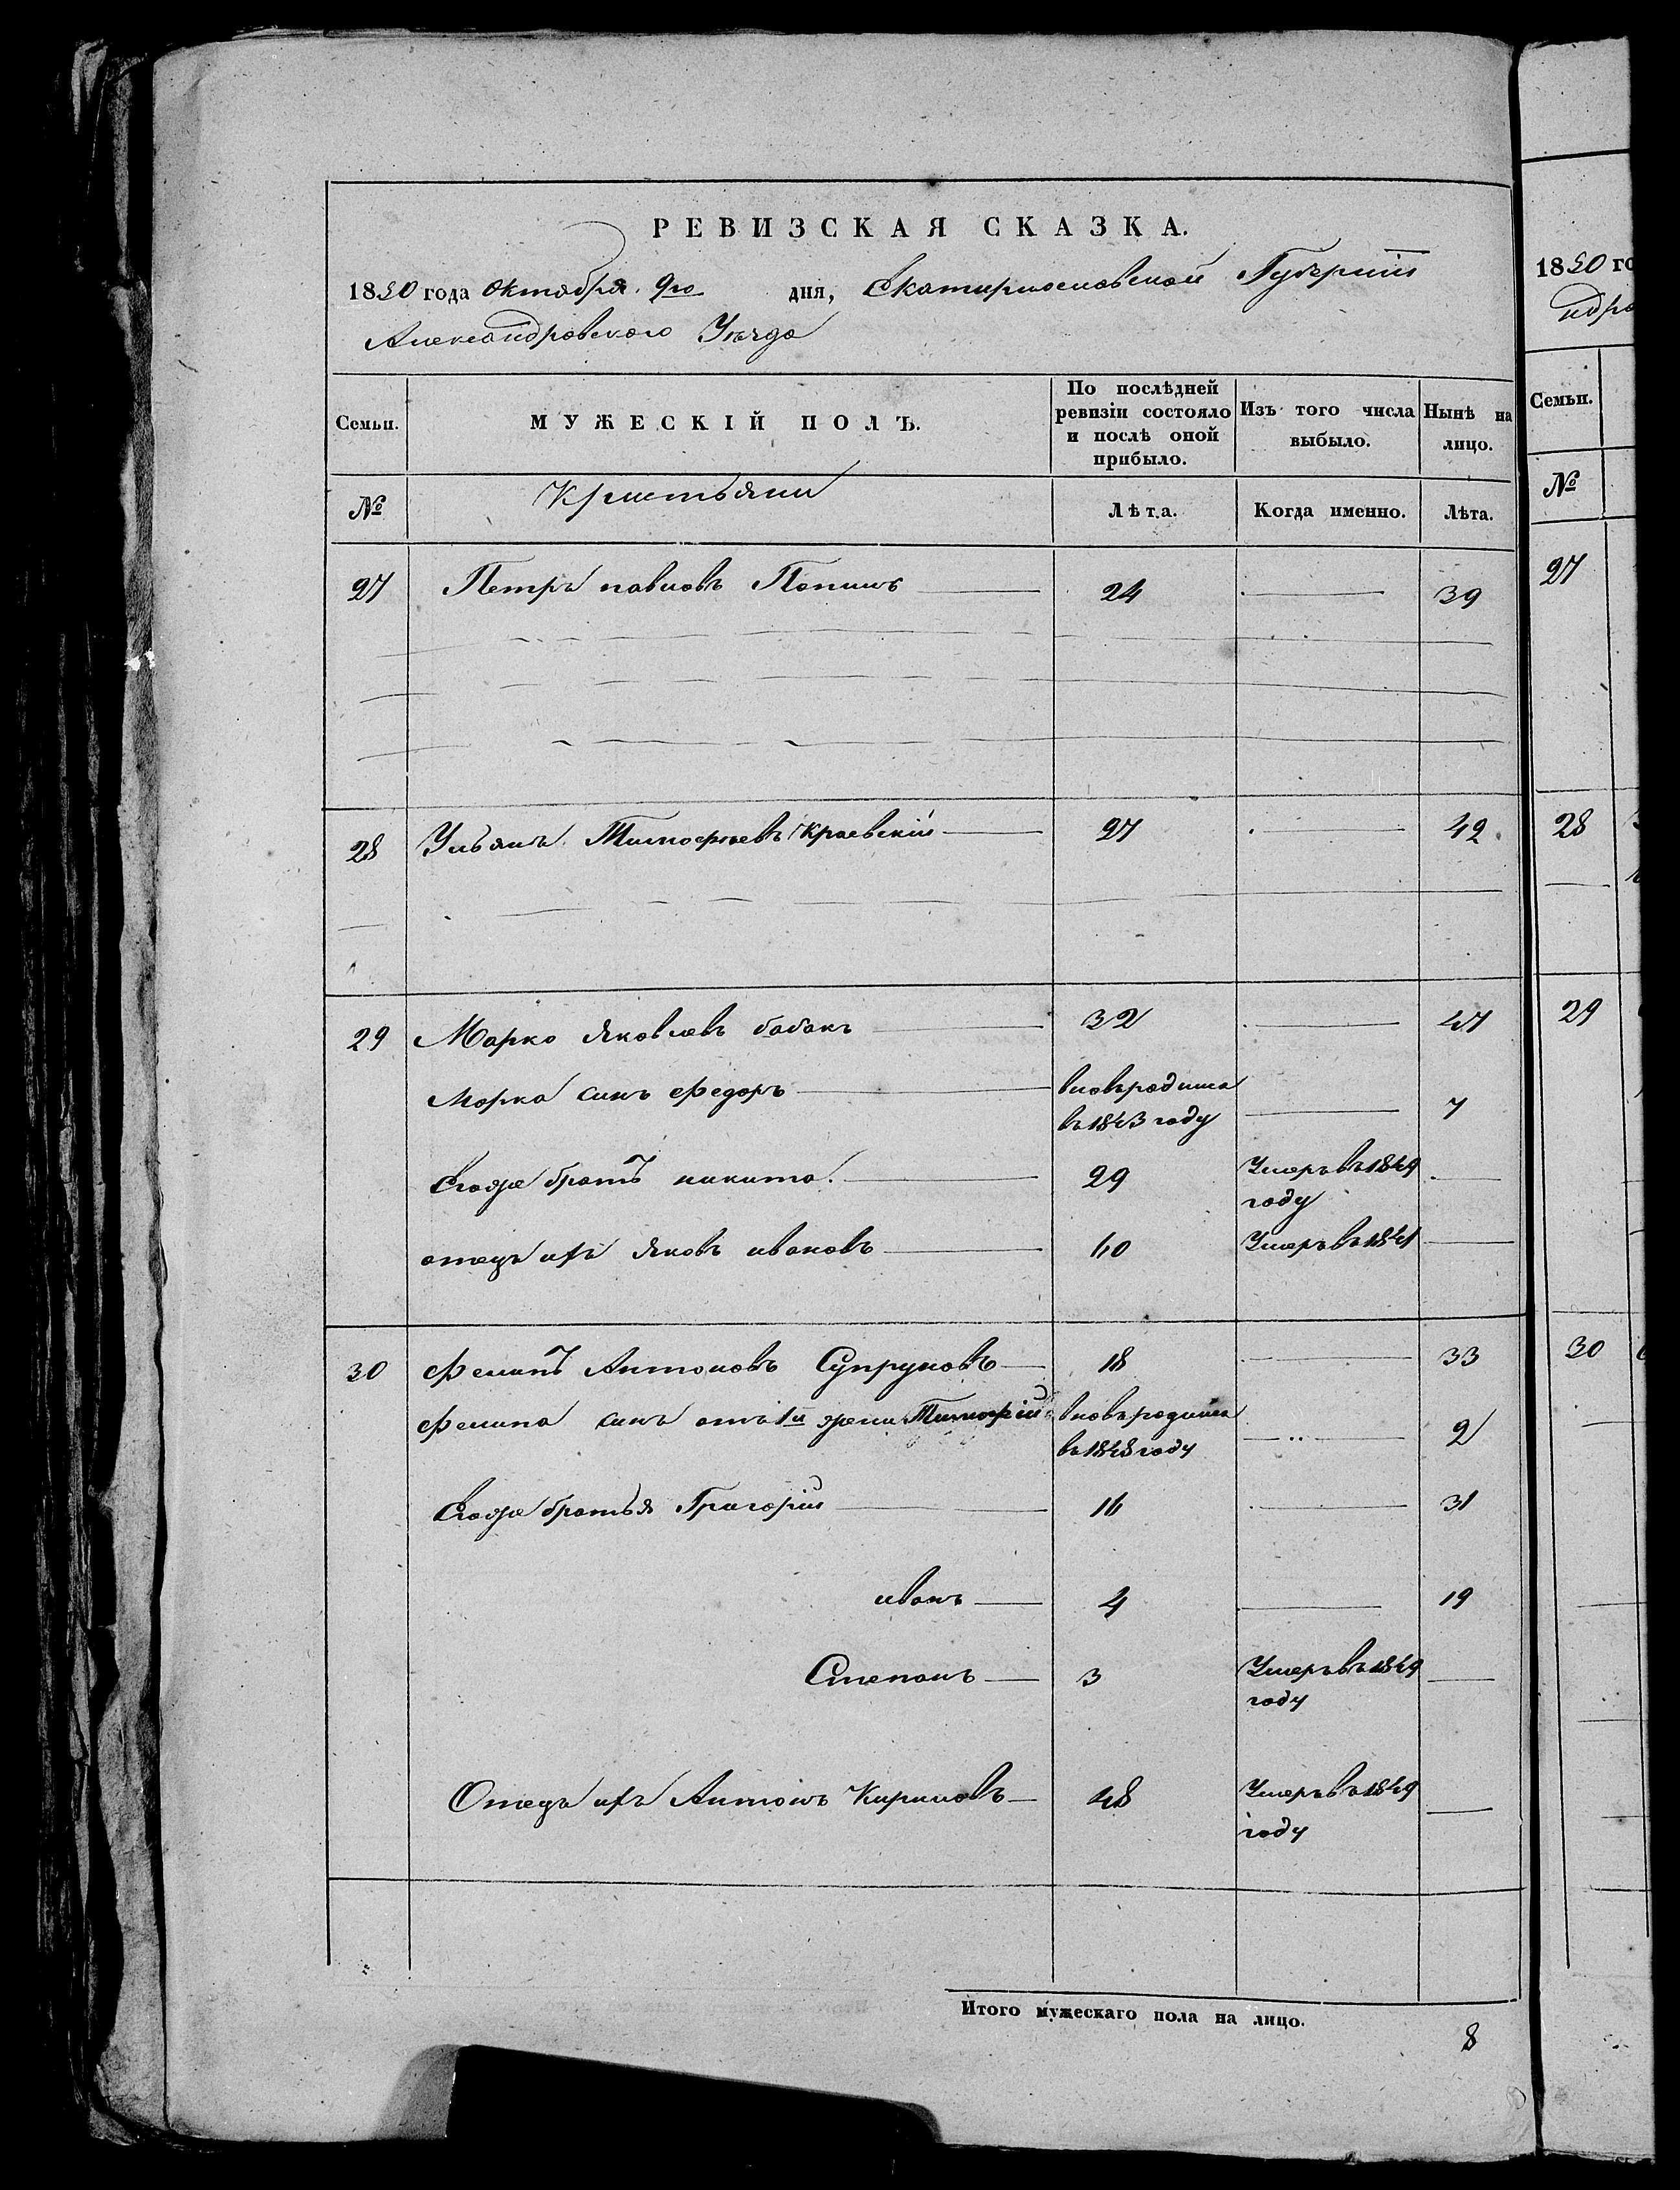 РЕВИЗСКАЯ СКАЗКА.
1850 года Октября 9го дня, Екатеринославской Губернии
Александровского Уезда
Семьи. МУЖЕСКІЙ ПОЛЪ. По послѣдней ревизіи состояло и послѣ оной прибыло. Изъ того числа выбыло. Нынѣ на лицо.
№ Крестьяни Лѣта. Когда именно. Лѣта.
27 Петръ павловъ 24 39
28 Ульянъ Тимофѣевъ Краевскій 27 42
29 Марко Яковлевъ бабакъ 32 47
Марка синъ Федоръ вновърод въ 1843 году 7
Егоже братъ никита 29 Умеръ въ 1849 году
отецъ ихъ Яковъ ивановъ 60 Умеръ въ 1841
30 Филипъ Антоновъ Супруновъ 18 33
Филипа синъ отъ 1й жени Тимофій вновърод въ 1848 году 2
Егоже братья Григорій 16 31
иванъ 4 19
Степанъ 3 Умеръ въ 1849 году
Отецъ ихъ Антонъ Кириловъ 48 Умеръ въ 1849 году
Итого мужескаго пола на лицо.
8
1850 го
Семьи.
№
27
28
29
30